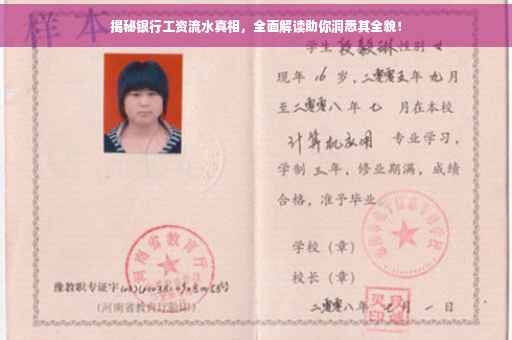 揭秘银行工资流水真相，全面解读助你洞悉其全貌！
样本
学生段毅琳性别女
现年16岁，二零零五年九月
至二零零八年七月在本校
计算机应用 专业学习，
学制三年，修业期满，成绩
合格，准予毕业
学校（章）
校长（章）
二零零八年七月一日
河南省教育厅
豫教职专证字
（河南省教育厅验印）